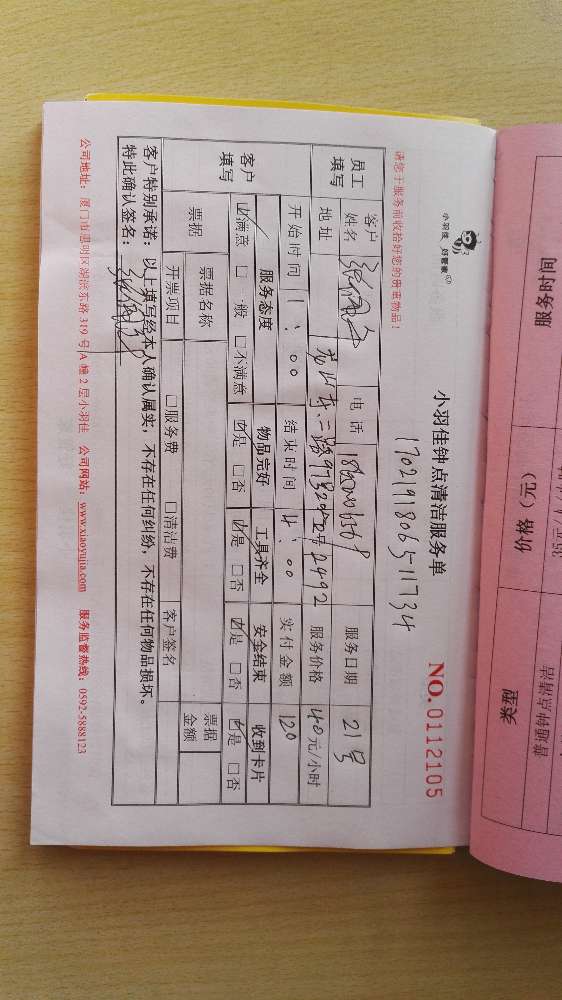 小羽佳 好管家
小羽佳钟点清洁服务单
NO.0112105
17021918065111734
请您于服务前收拾好您的贵重物品！
员工填写
客户姓名
电话
服务日期 21号
地址
服务价格 40元/小时
开始时间 1:00
结束时间 4:00
实付金额 120
客户填写
服务态度 物品完好 工具齐全 安全结束 收到卡片
☑满意 □一般 □不满意 ☑是 □否 ☑是 □否 ☑是 □否 ☑是 □否
票据
票据名称
票据金额
开票项目 □服务费 □清洁费 客户签名
客户特别承诺：以上填写经本人确认属实，不存在任何纠纷，不存在任何物品损坏。
特此确认签名：
公司地址：厦门市思明区湖滨东路319号A幢2层小羽佳 公司网站：www.xiaoyujia.com 服务监督热线：0592-5888123
服务时间
价格（元）
类型
普通钟点清洁